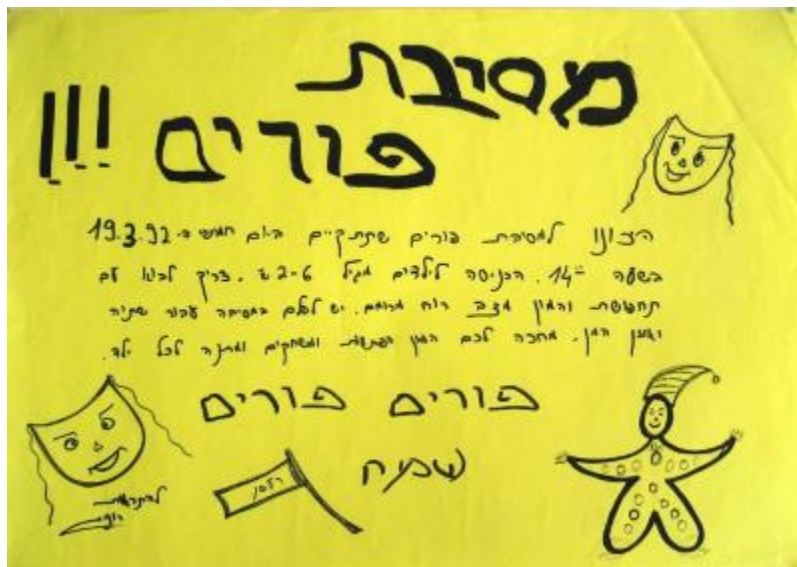 מסיבת
פורים !!!
למסיבת פורים שתתקיים ביום חמישי ה-19.3.92
בשעה 14. הכניסה לילדים מגיל 2-6. צריך לבוא עם
תחפושת והמון מצב רוח מרומם. יש לשלם במסיבה עבור שתיה
ואוזן המן. מחכה לכם המון הפתעות ומשחקים ומתנה לכל ילד.
פורים פורים
שמח
רעשן
להתראות